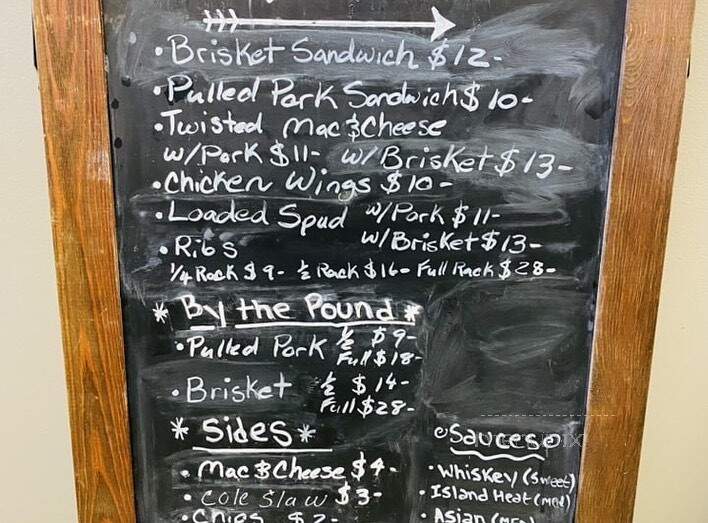 • Brisket Sandwich $12-
• Pulled Pork Sandwich $10-
• Twisted Mac & Cheese
w/Pork $11- w/Brisket $13-
• Chicken Wings $10-
• Loaded Spud w/Pork $11-
w/Brisket $13-
• Ribs
1/4 Rack $9- 1/2 Rack $16- Full Rack $28-
* By the Pound *
• Pulled Pork 1/2 $9-
Full $18-
• Brisket 1/2 $14-
Full $28-
* Sides *
• Mac & Cheese $4-
• Cole Slaw $3-
• Chips $2-
Sauces
• Whiskey (Sweet)
• Island Heat (med)
• Asian (med)